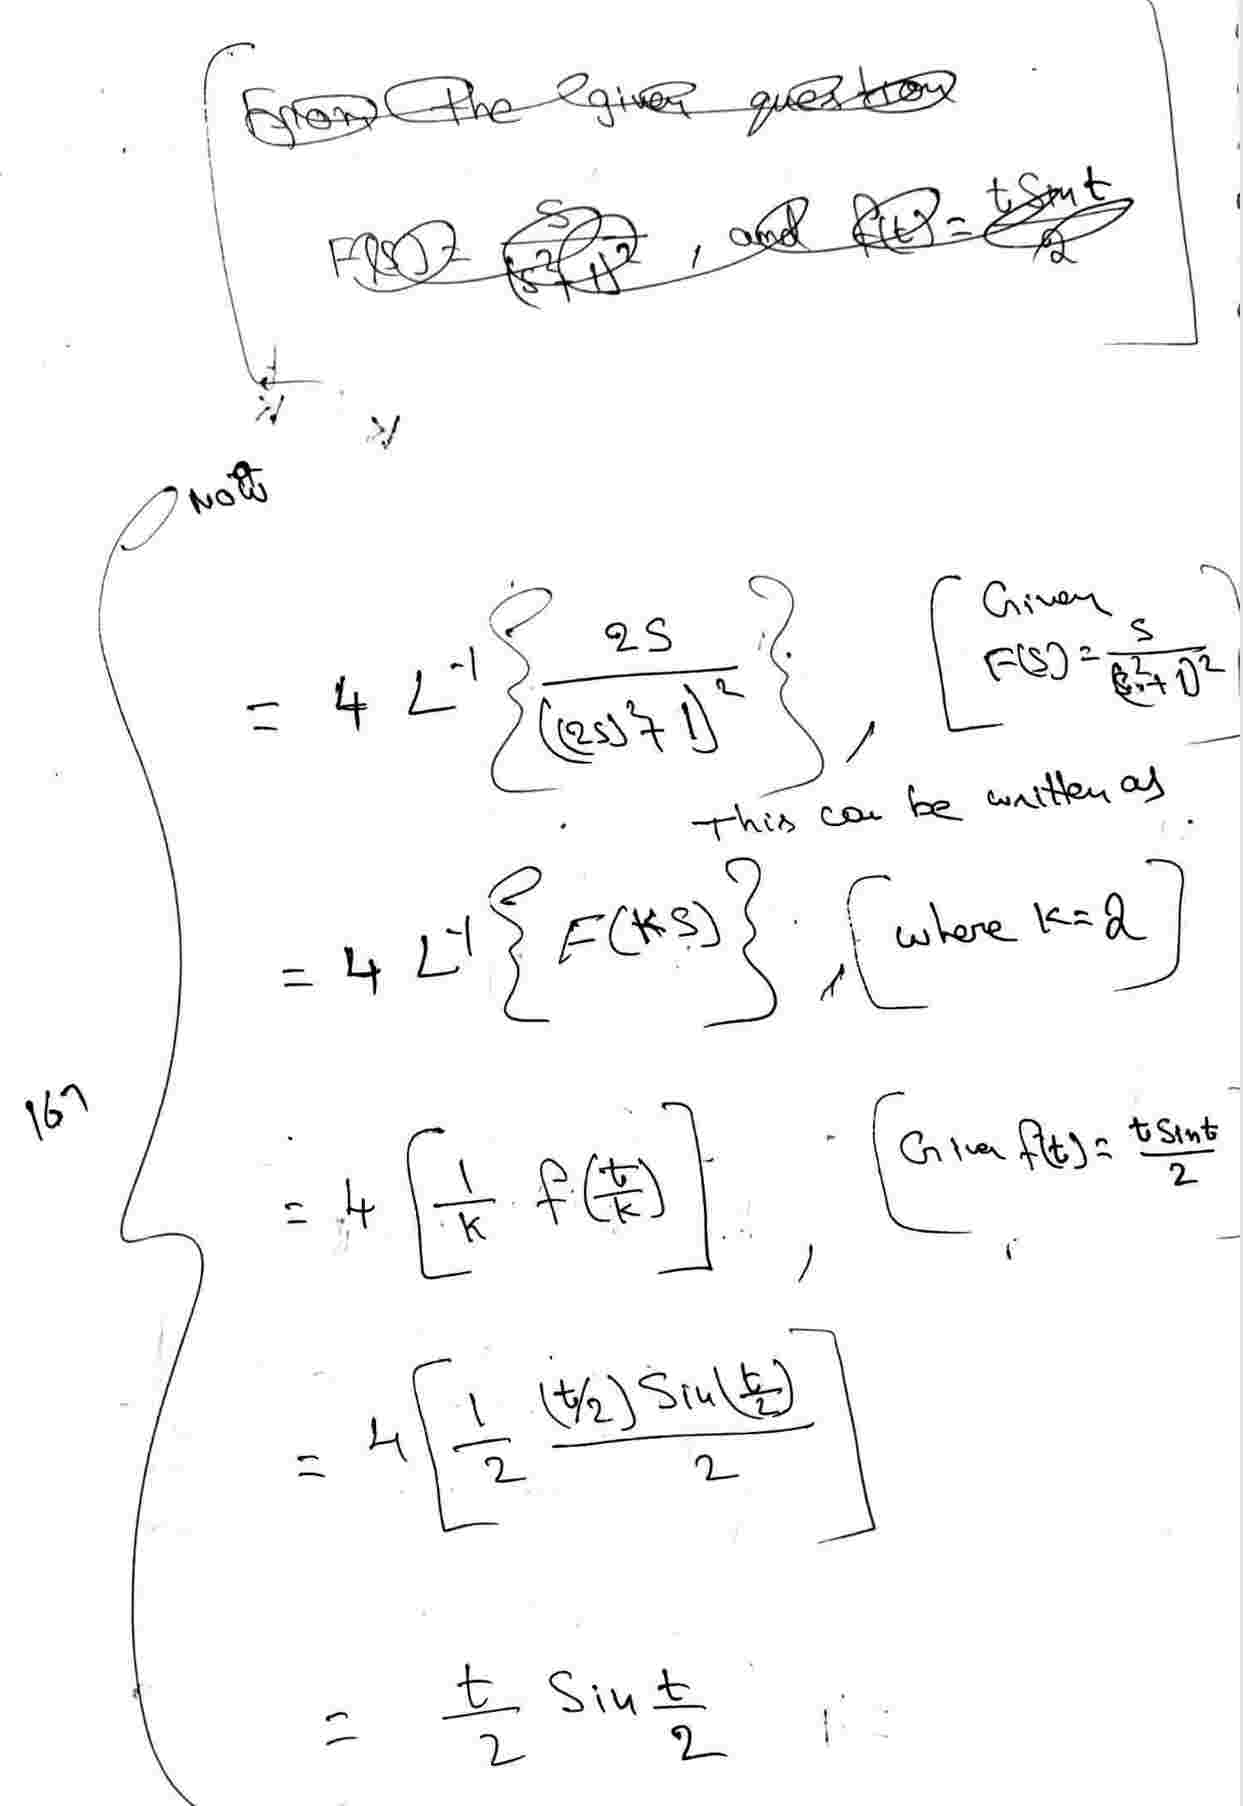 From the given question
F(s) = s/(s²+1)², and f(t) = t Sin t/2
Now
= 4 L⁻¹ { 2S/((2s)²+1)² }, [Given F(S) = s/(s²+1)²]
This can be written as
= 4 L⁻¹ { F(KS) }, [where K=2]
167
= 4 [ 1/k f(t/k) ], [Given f(t) = t Sint/2]
= 4 [ 1/2 (t/2) Sin(t/2)/2 ]
= t/2 Sin t/2